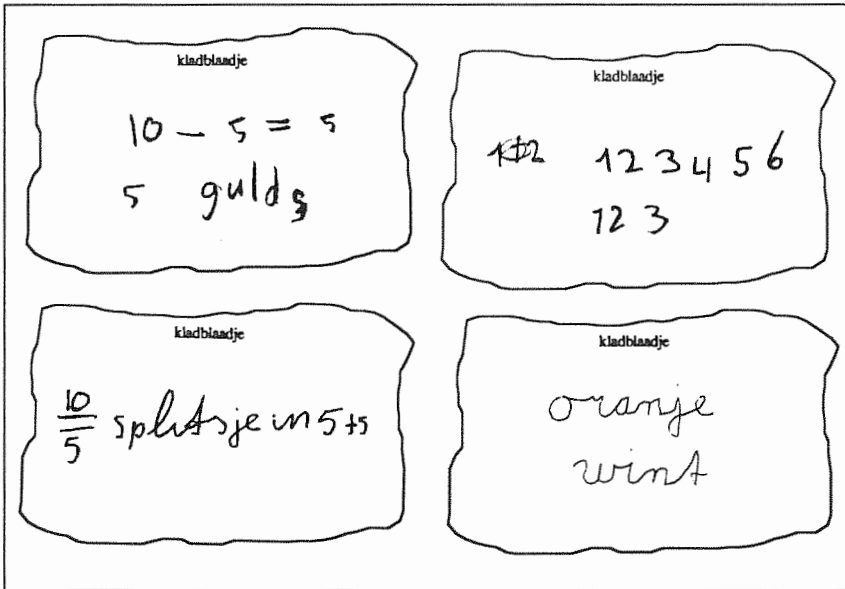 kladblaadje
10 - 5 = 5
5 guld
kladblaadje
1 2 3 4 5 6
1 2 3
kladblaadje
10
5
splitsje in 5+5
kladblaadje
oranje
wint